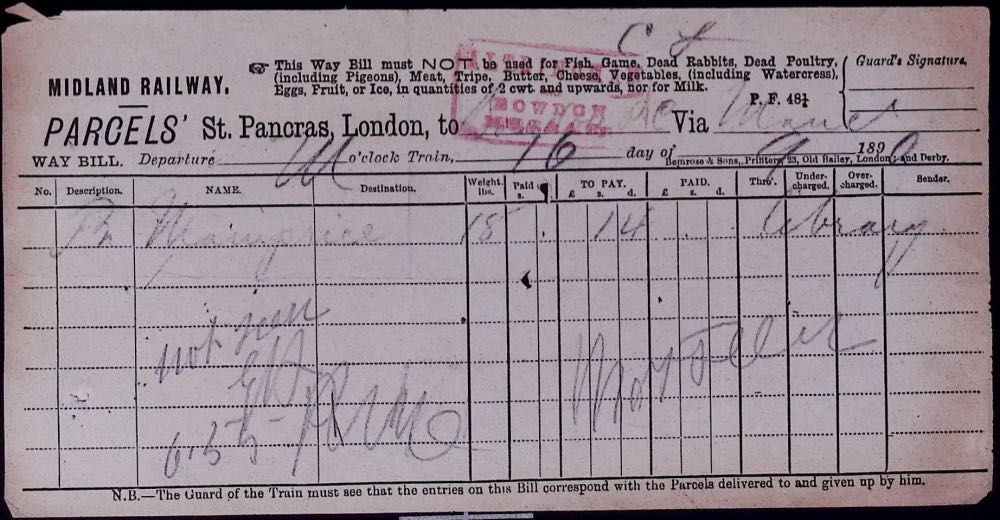 C
☞ This Way Bill must NOT be used for Fish, Game, Dead Rabbits, Dead Poultry,
(including Pigeons), Meat, Tripe, Butter, Cheese, Vegetables, (including Watercress),
Eggs, Fruit, or Ice, in quantities of 2 cwt. and upwards, nor for Milk.
Guard's Signature.
MIDLAND RAILWAY.
P. F. 48½
BOWDON
PARCELS' St. Pancras, London, to Via Manc
WAY BILL. Departure o'clock Train, 16 day of 9 1890
Bemrose & Sons, Printers, 23, Old Bailey, London; and Derby.
No. Description. NAME. Destination. Weight. lbs. Paid on s. TO PAY. £ s. d. PAID. £ s. d. Thro'. Under-charged. Over-charged. Sender.
18 14 Library
not
6.55
N.B.—The Guard of the Train must see that the entries on this Bill correspond with the Parcels delivered to and given up by him.